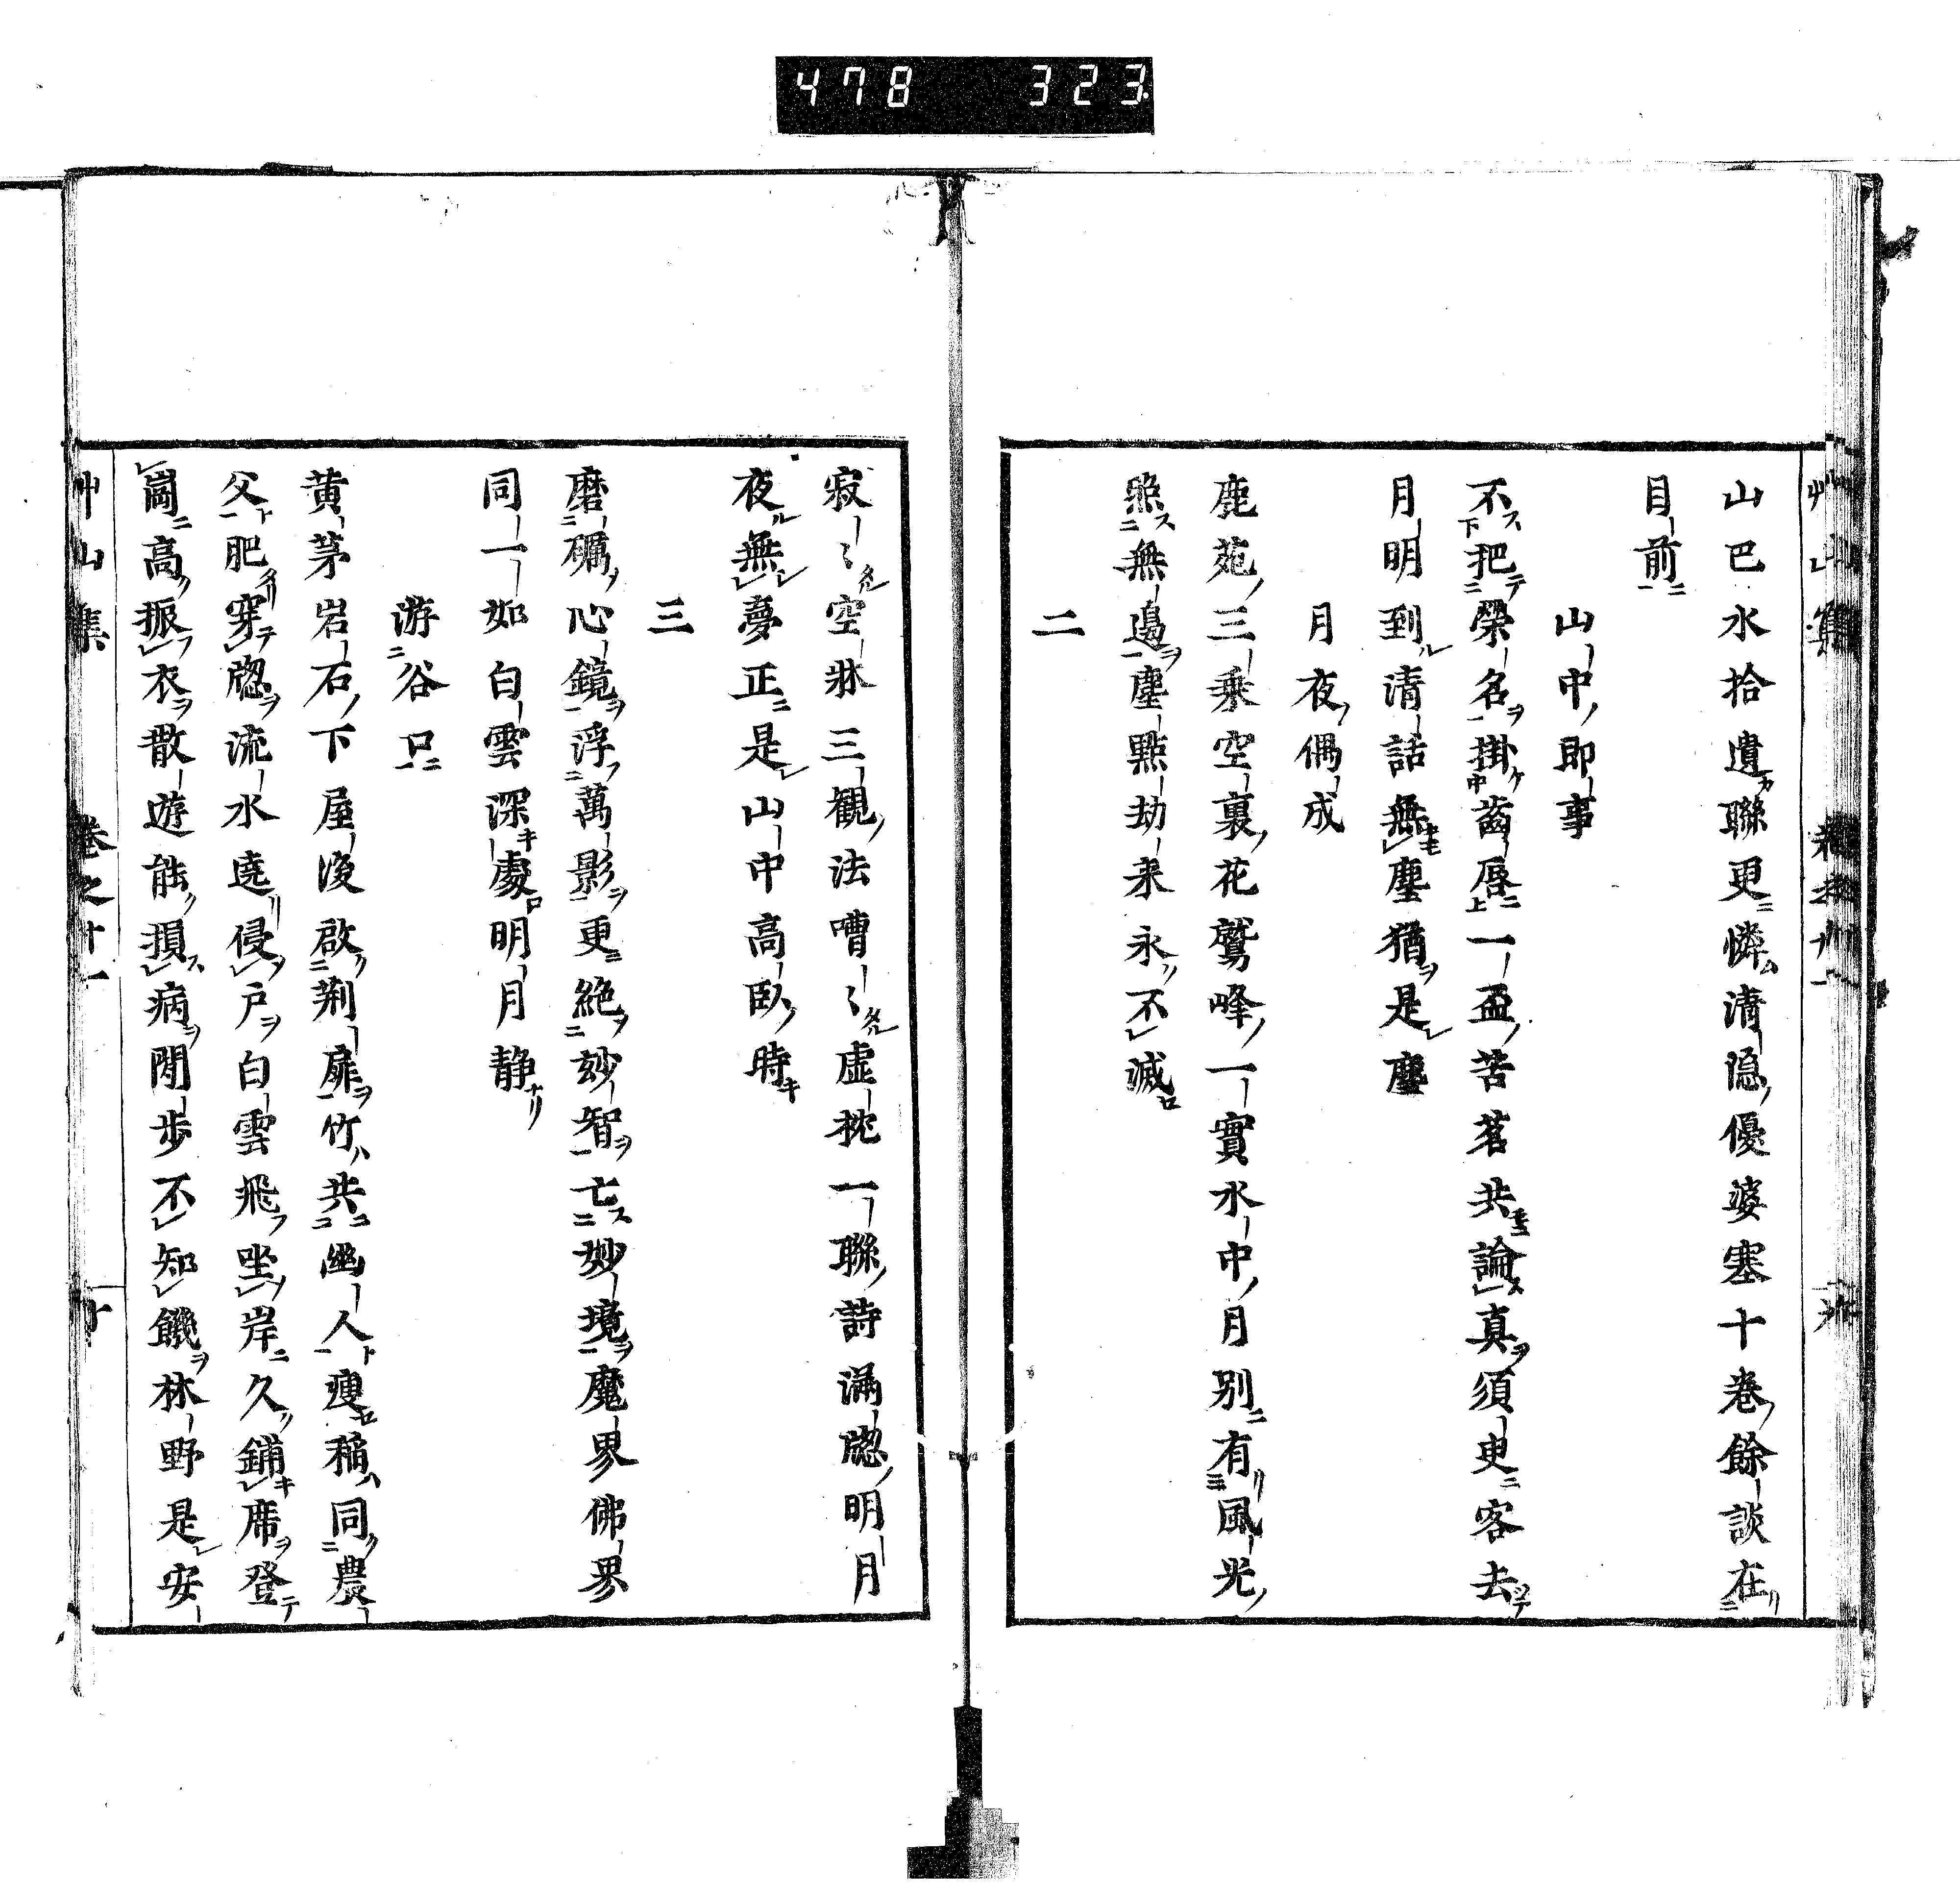 478 323
山巴水拾遺聯更憐清隠優婆塞十卷餘談在
目前
山中即事
不把榮名掛齒唇一盃苦茗共論真須臾客去
月明到清話無塵猶是塵
月夜偶成
鹿苑三乗空裏花鷲峰一實水中月別有風光
照無邊塵點劫来永不滅
二
寂〻空牀三観法嘈〻虚枕一聯詩満牕明月
夜無夢正是山中高臥時
三
磨礪心鏡浮萬影更絶玅智亡妙境魔界佛界
同一如白雲深處明月静
游谷口
黄茅岩石下屋後啟荆扉竹共幽人痩稲同農
父肥穿牕流水遶侵戸白雲飛坐岸久鋪席登
崗高振衣散遊能損病閒歩不知饑林野是安
艸山集 卷之廿一